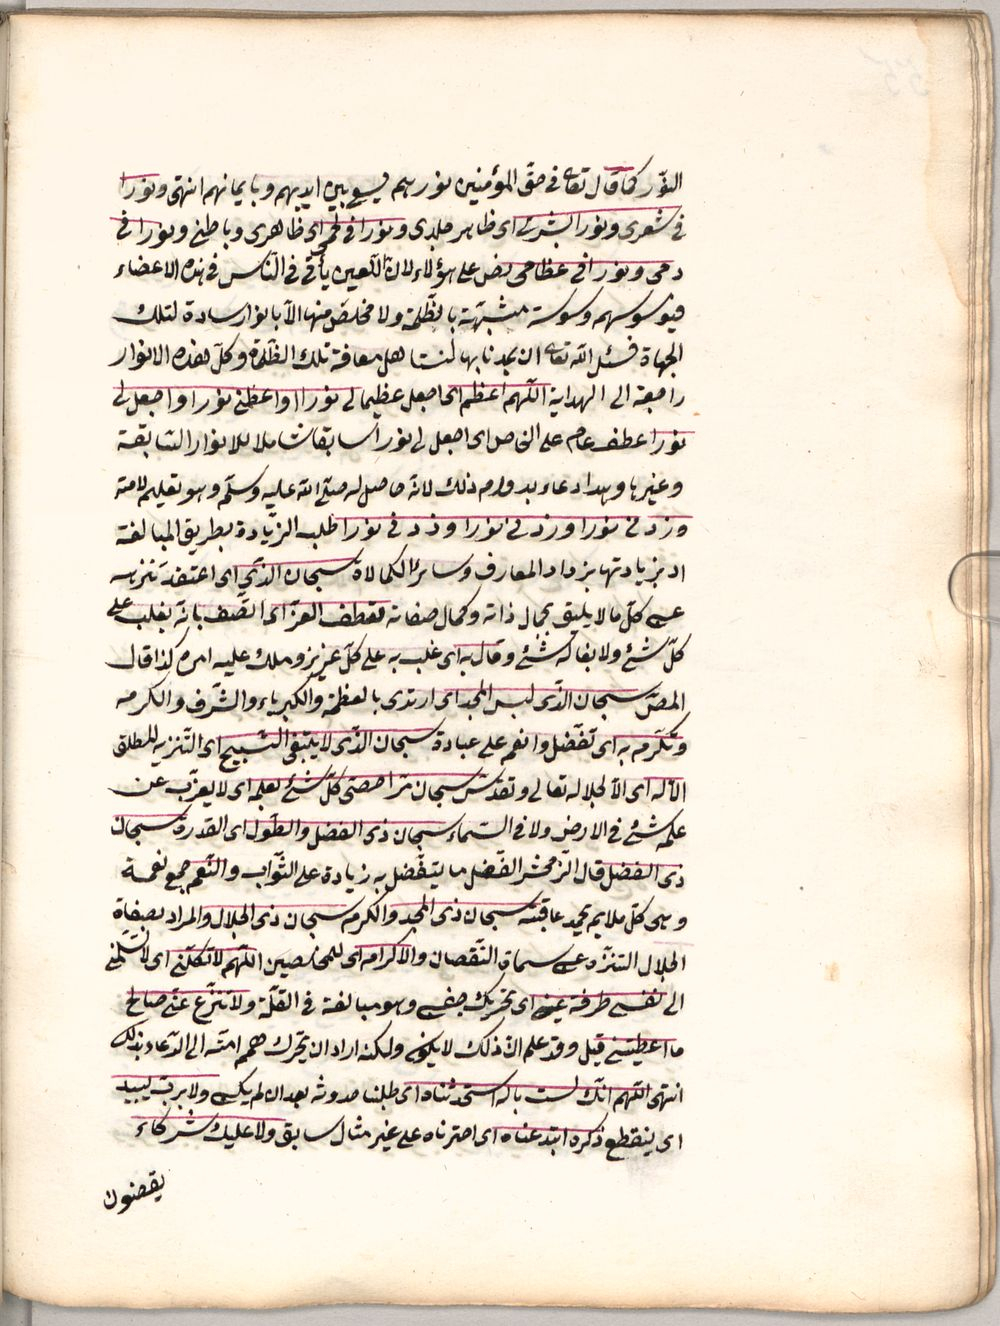 النور كما قال تعا في حق المؤمنين نورهم يسعى بين ايديهم وبايمانهم انتهى ونورا
في شعرى ونورا في بشرى اى ظاهر جلدى ونورا في لحمى اى ظاهرى وباطنى ونورا في
دمى ونورا في عظامى نص على هؤلاء لان اللعين يأتى في الناس في هذه الاعضاء
فيوسوسهم وسوسة مشبهة بالظلمة ولا مخلص منها الا بانوار سادة لتلك
الجهاة فسئل الله تعا ان يمدنا بها لنستاهل معافة تلك الظلمة وكل هذه الانوار
راجعة الى الهداية اللهم اعظم اى اجعل عظيما لى نورا واعطنى نورا واجعل لى
نورا عطف عام على الخاص اى اجعل لى نورا سابقا شاملا للانوار السابقة
وغيرها وهذا دعاء بدوام ذلك لانه حاصل له صلى الله عليه وسلم وهو تعليم لامته
وزدنى نورا وزدنى نورا وزدنى نورا طلب الزيادة بطريق المبالغة
اذ بزيادتها يزداد المعارف وسائر الكمالاة سبحان الذى اى اعتقد تنزهه
عن كل ما لا يليق بجمال ذاته وكمال صفاته تعطف العز اى اتصف بانه يغلب على
كل شئ ولا يغالبه شئ وقال به اى غلب به على كل عزيز وملك عليه امره كذا قال
المص سبحان الذى لبس المجد اى ارتدى بالعظمة والكبرياء والشرف والكرم
وتكرم به اى تفضل وانعم على عباده سبحان الذى لا ينبغى التسبيح اى التنزيه المطلق
الا له اى الا لجلاله تعالى وتقدس سبحان من احصى كل شئ بعلمه اى لا يعزب عن
علمه شئ في الارض ولا في السماء سبحان ذى الفضل والطول اى القدرة سبحان
ذى الفضل قال الزمخشر الفضل ما يتفضل به زيادة على الثواب والنعم جمع نعمة
وهى كل ملايم تحمد عاقبته سبحان ذى المجد والكرم سبحان ذى الجلال والمراد بصفاة
الجلال التنزه عن سماة النقصان والاكرام اى للمخلصين اللهم لا تكلنى اى لا تسلمنى
الى نفسى طرفة عين اى تحريك جفن وهو مبالغة في القلة ولا تنزع عنى صالح
ما اعطيتنى قيل وقد علم ان ذلك لا يكون ولكنه اراد ان يحرك همم امته الى الدعاء بذلك
انتهى اللهم انك لست باله استحدثناه اى طلبنا حدوثه بعد ان لم يكن ولا برب يبيد
اى ينقطع ذكره ابتدعناه اى اخترناه على غير مثال سابق ولا عليك شركاء
يقضون